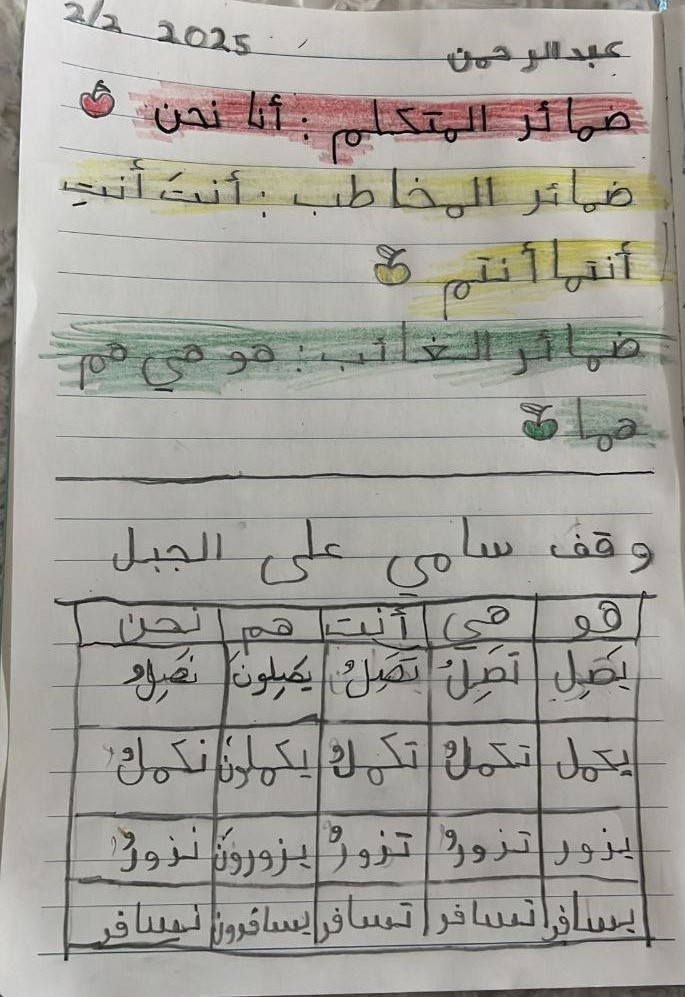 2/2 2025
عبدالرحمن
ضمائر المتكلم : أنا نحن
ضمائر المخاطب : أنتَ أنتِ
أنتما أنتم
ضمائر الغائب : هو هي هم
هما
وقف سامي على الجبل
هو هي أنت هم نحن
يَصِل تَصِلُ تَصِلُ يَصِلونَ نَصِلُ
يكمل تكملُ تكملُ يكملونَ نكملُ
يزور تزورُ تزورُ يزورونَ نزورُ
يسافر تسافر تسافر يسافرون نسافر